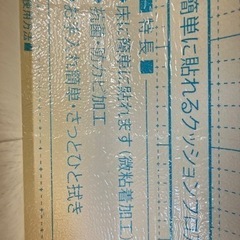 簡単に貼れるクッションフロ
■特長■
・床に簡単に貼れます（微粘着加工）
・抗菌・防カビ加工
お手入れ簡単・さっとひと拭き
使用方法■